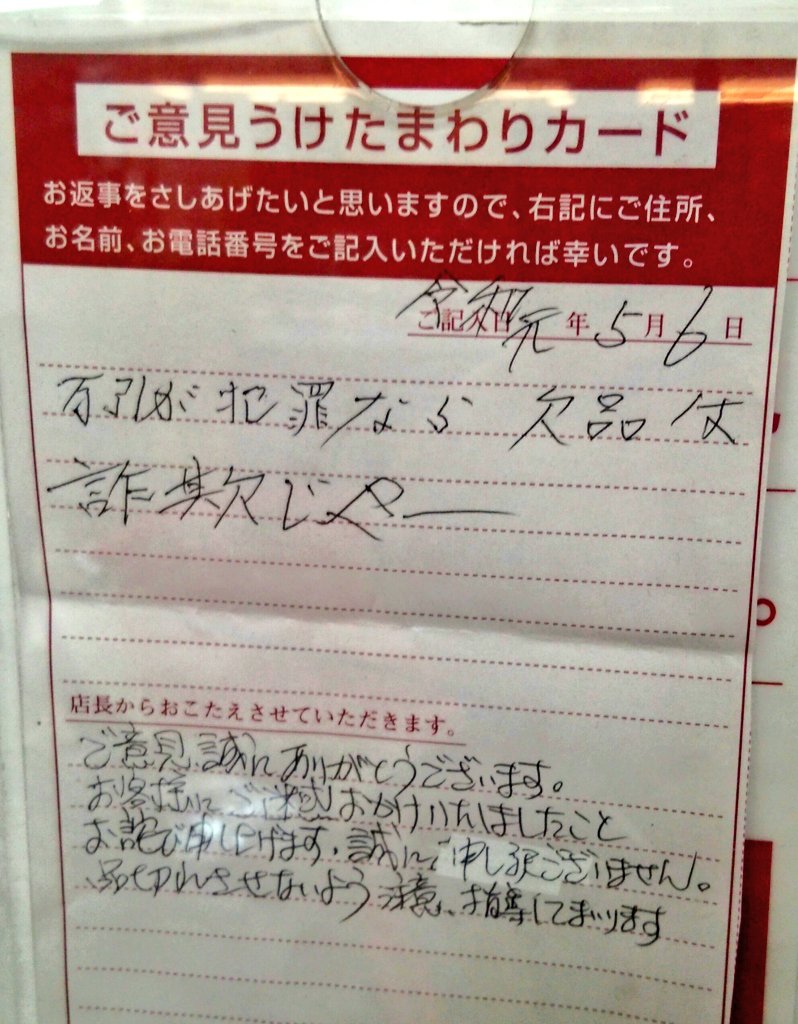 ご意見うけたまわりカード
お返事をさしあげたいと思いますので、右記にご住所、
お名前、お電話番号をご記入いただければ幸いです。
ご記入日 令和元年5月6日
万引が犯罪なら 欠品は
詐欺じゃー
店長からおこたえさせていただきます。
ご意見、誠にありがとうございます。
お客様にご迷惑おかけいたしましたこと
お詫び申し上げます。誠に申し訳ございません。
品切れさせないよう 注意、指導してまいります